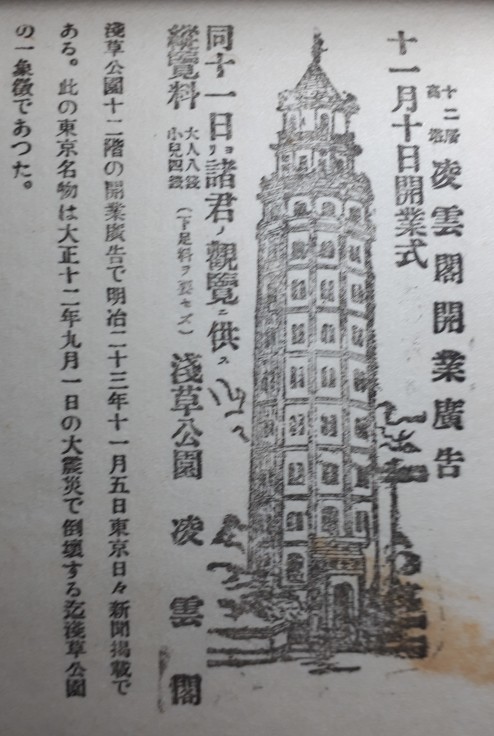 十二階
高塔
凌雲閣開業廣告
十一月十日開業式
同十一日ヨリ諸君ノ觀覽ニ供ス
縱覽料
大人八錢
小兒四錢
(下足料ヲ要セズ)
淺草公園 凌雲閣
淺草公園十二階の開業廣告で明治二十三年十一月五日東京日々新聞掲載で
ある。此の東京名物は大正十二年九月一日の大震災で倒壞する迄淺草公園
の一象徴であつた。